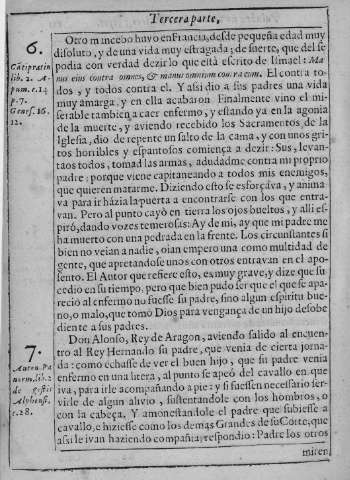 Tercera parte,
6.
Cãtipratin.
lib. 2. A-
pum. c. 14
p. 7.
Genes. 16.
12.
Otro mancebo huvo en Francia, desde pequeña edad muy
disoluto, y de una vida muy estragada; de suerte, que del se
podia con verdad dezir lo que està escrito de Ismael: Ma-
nus eius contra omnes, & manus omnium contra eum. El contra to-
dos, y todos contra el. Y assi dio a sus padres una vida
muy amarga, y en ella acabaron. Finalmente vino el mi-
serable tambien a caer enfermo, y estando ya en la agonia
de la muerte, y aviendo recebido los Sacramentos de la
Iglesia, dio de repente un salto de la cama, y con unos gri-
tos horribles y espantosos comiença a dezir: Sus, levan-
taos todos, tomad las armas, adudadme contra mi proprio
padre: porque viene capitaneando a todos mis enemigos,
que quieren matarme. Diziendo esto se esforçava, y anima
va para ir házia la puerta a encontrarse con los que entra-
van. Pero al punto cayò en tierra los ojos bueltos, y alli es-
pirò, dando vozes temerosas: Ay de mi, ay que mi padre me
ha muerto con una pedrada en la frente. Los circunstantes si
bien no veian a nadie, oian empero una como multidad de
gente, que apretandose unos con otros entravan en el apo-
sento. El Autor que refiere esto, es muy grave, y dize que su
cedio en su tiempo. pero que bien pudo ser que el que se apa-
reciò al enfermo no fuesse su padre, sino algun espiritu bue-
no, o malo, que tomò Dios para vengança de un hijo desobe
diente a sus padres.
7.
Auton. Pa
norm. lib. 2
de gestis
Alphons.
c. 28.
Don Alonso, Rey de Aragon, aviendo salido al encuen-
tro al Rey Hernando su padre, que venia de cierta jorna-
da: como echasse de ver el buen hijo, que su padre venia
enfermo en una litera, al punto se apeò del cavallo en que
iva, para irle acompañando a pie: y si fuessen necessario ser-
virle de algun alivio, sustentandole con los hombros, o
con la cabeça. Y amonestandole el padre que subiesse a
cavallo, e hiziesse como los demas Grandes de su Corte, que
assi le ivan haziendo compañia, respondio: Padre los otros
miren